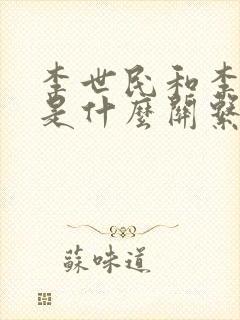 李世民和李
是什麼關繫
蘇味道